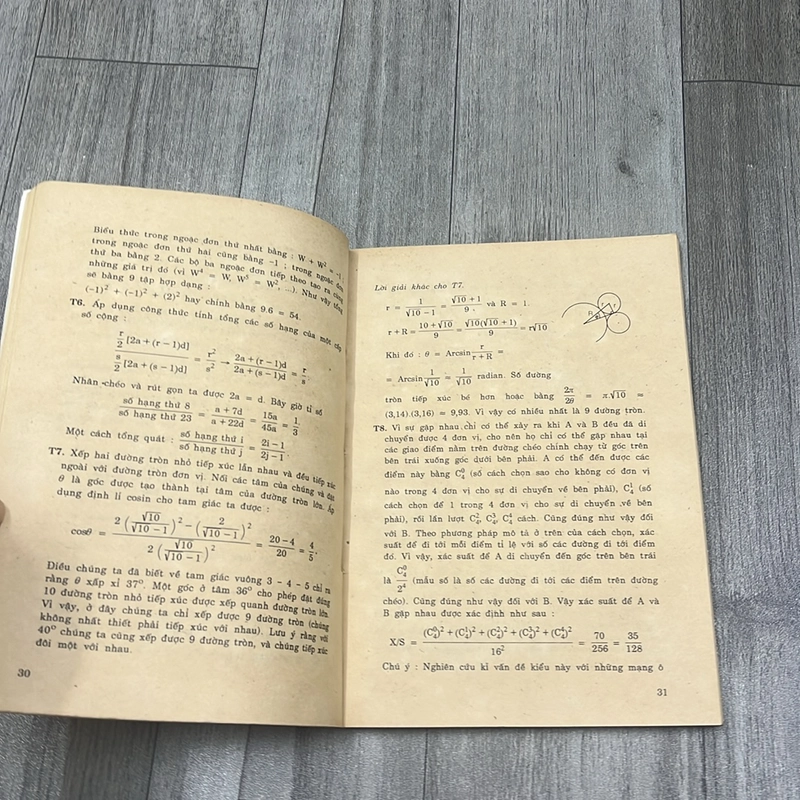 Biểu thức trong ngoặc đơn thứ nhất bằng : W + W² = -1 ;
trong ngoặc đơn thứ hai cũng bằng -1 ; trong ngoặc đơn
thứ ba bằng 2. Các bộ ba ngoặc đơn tiếp theo tạo ra cùng
những giá trị đó (vì W⁴ = W, W⁵ = W², ...). Như vậy tổng
sẽ bằng 9 tập hợp dạng :
(-1)² + (-1)² + (2)² hay chính bằng 9.6 = 54.
T6. Áp dụng công thức tính tổng các số hạng của một cấp
số cộng :
r/2 [2a + (r - 1)d] / s/2 [2a + (s - 1)d] = r²/s² → 2a + (r - 1)d / 2a + (s - 1)d = r/s
Nhân chéo và rút gọn ta được 2a = d. Bây giờ tỉ số
số hạng thứ 8 / số hạng thứ 23 = a + 7d / a + 22d = 15a / 45a = 1/3
Một cách tổng quát : số hạng thứ i / số hạng thứ j = 2i - 1 / 2j - 1.
T7. Xếp hai đường tròn nhỏ tiếp xúc lẫn nhau và đều tiếp xúc
ngoài với đường tròn đơn vị. Nối các tâm của chúng và đặt
θ là góc được tạo thành tại tâm của đường tròn lớn. Áp
dụng định lí cosin cho tam giác ta được :
cosθ = 2(√10 / √10 - 1)² - (2 / √10 - 1)² / 2(√10 / √10 - 1)² = 20 - 4 / 20 = 4/5.
Điều chúng ta đã biết về tam giác vuông 3 - 4 - 5 chỉ ra
rằng θ xấp xỉ 37°. Một góc ở tâm 36° cho phép đặt đúng
10 đường tròn nhỏ tiếp xúc được xếp quanh đường tròn lớn.
Vì vậy, ở đây chúng ta chỉ xếp được 9 đường tròn (chúng
không nhất thiết phải tiếp xúc với nhau). Lưu ý rằng với
40° chúng ta cũng xếp được 9 đường tròn, và chúng tiếp xúc
đôi một với nhau.
30
Lời giải khác cho T7.
r = 1 / √10 - 1 = √10 + 1 / 9 . và R = 1.
r + R = 10 + √10 / 9 = √10(√10 + 1) / 9 = r√10
Khi đó : θ = Arcsin r / r + R =
= Arcsin 1/√10 ≐ 1/√10 radian. Số đường
tròn tiếp xúc bé hơn hoặc bằng 2π/2θ = π√10 =
(3,14).(3,16) ≈ 9,93. Vì vậy có nhiều nhất là 9 đường tròn.
T8. Vì sự gặp nhau chỉ có thể xảy ra khi A và B đều đã di
chuyển được 4 đơn vị, cho nên họ chỉ có thể gặp nhau tại
các giao điểm nằm trên đường chéo chính chạy từ góc trên
bên trái xuống góc dưới bên phải. A có thể đến được các
điểm này bằng C₄⁰ (số cách chọn sao cho không có đơn vị
nào trong 4 đơn vị cho sự di chuyển về bên phải), C₄¹ (số
cách chọn để 1 trong 4 đơn vị cho sự di chuyển về bên
phải), rồi lần lượt C₄², C₄³, C₄⁴ cách. Cũng đúng như vậy đối
với B. Theo phương pháp mô tả ở trên của cách chọn, xác
suất để đi tới mỗi điểm tỉ lệ với số các đường đi tới điểm
đó. Vì vậy, xác suất để A di chuyển đến góc trên bên trái
là C₄⁰ / 2⁴ (mẫu số là số các đường đi tới các điểm trên đường
chéo). Cũng đúng như vậy đối với B. Vậy xác suất để A và
B gặp nhau được xác định như sau :
X/S = (C₄⁰)² + (C₄¹)² + (C₄²)² + (C₄³)² + (C₄⁴)² / 16² = 70 / 256 = 35 / 128
Chú ý : Nghiên cứu kĩ vấn đề kiểu này với những mạng ô
31